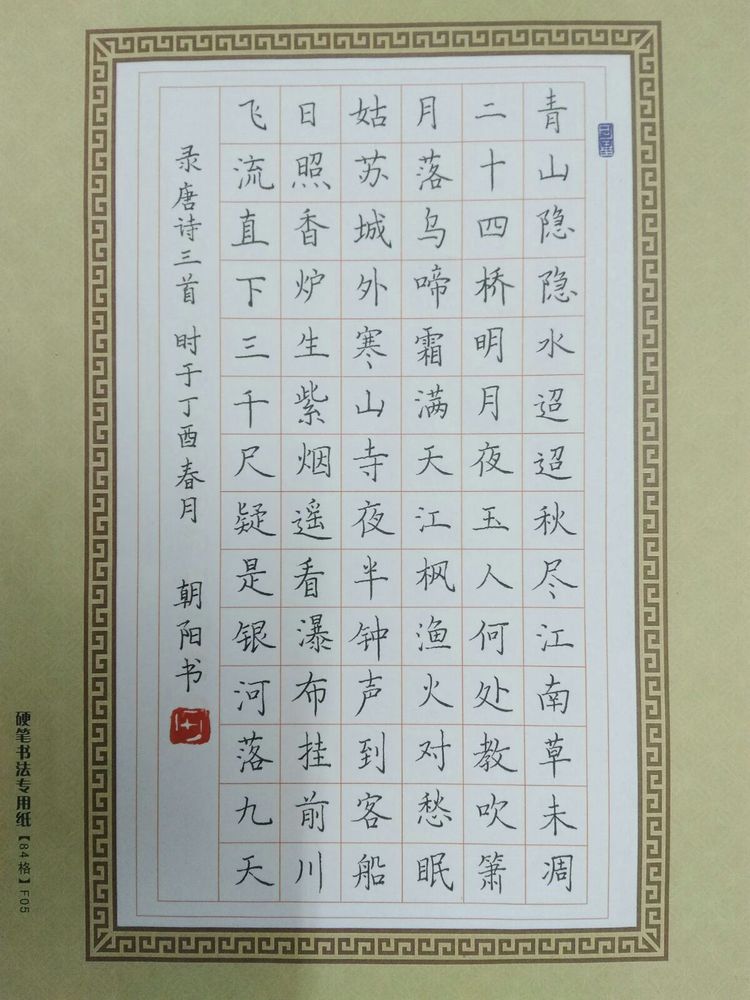 青山隐隐水迢迢秋尽江南草未凋
二十四桥明月夜玉人何处教吹箫
月落乌啼霜满天江枫渔火对愁眠
姑苏城外寒山寺夜半钟声到客船
日照香炉生紫烟遥看瀑布挂前川
飞流直下三千尺疑是银河落九天
录唐诗三首 时于丁酉春月 朝阳书
硬笔书法专用纸【84格】F05